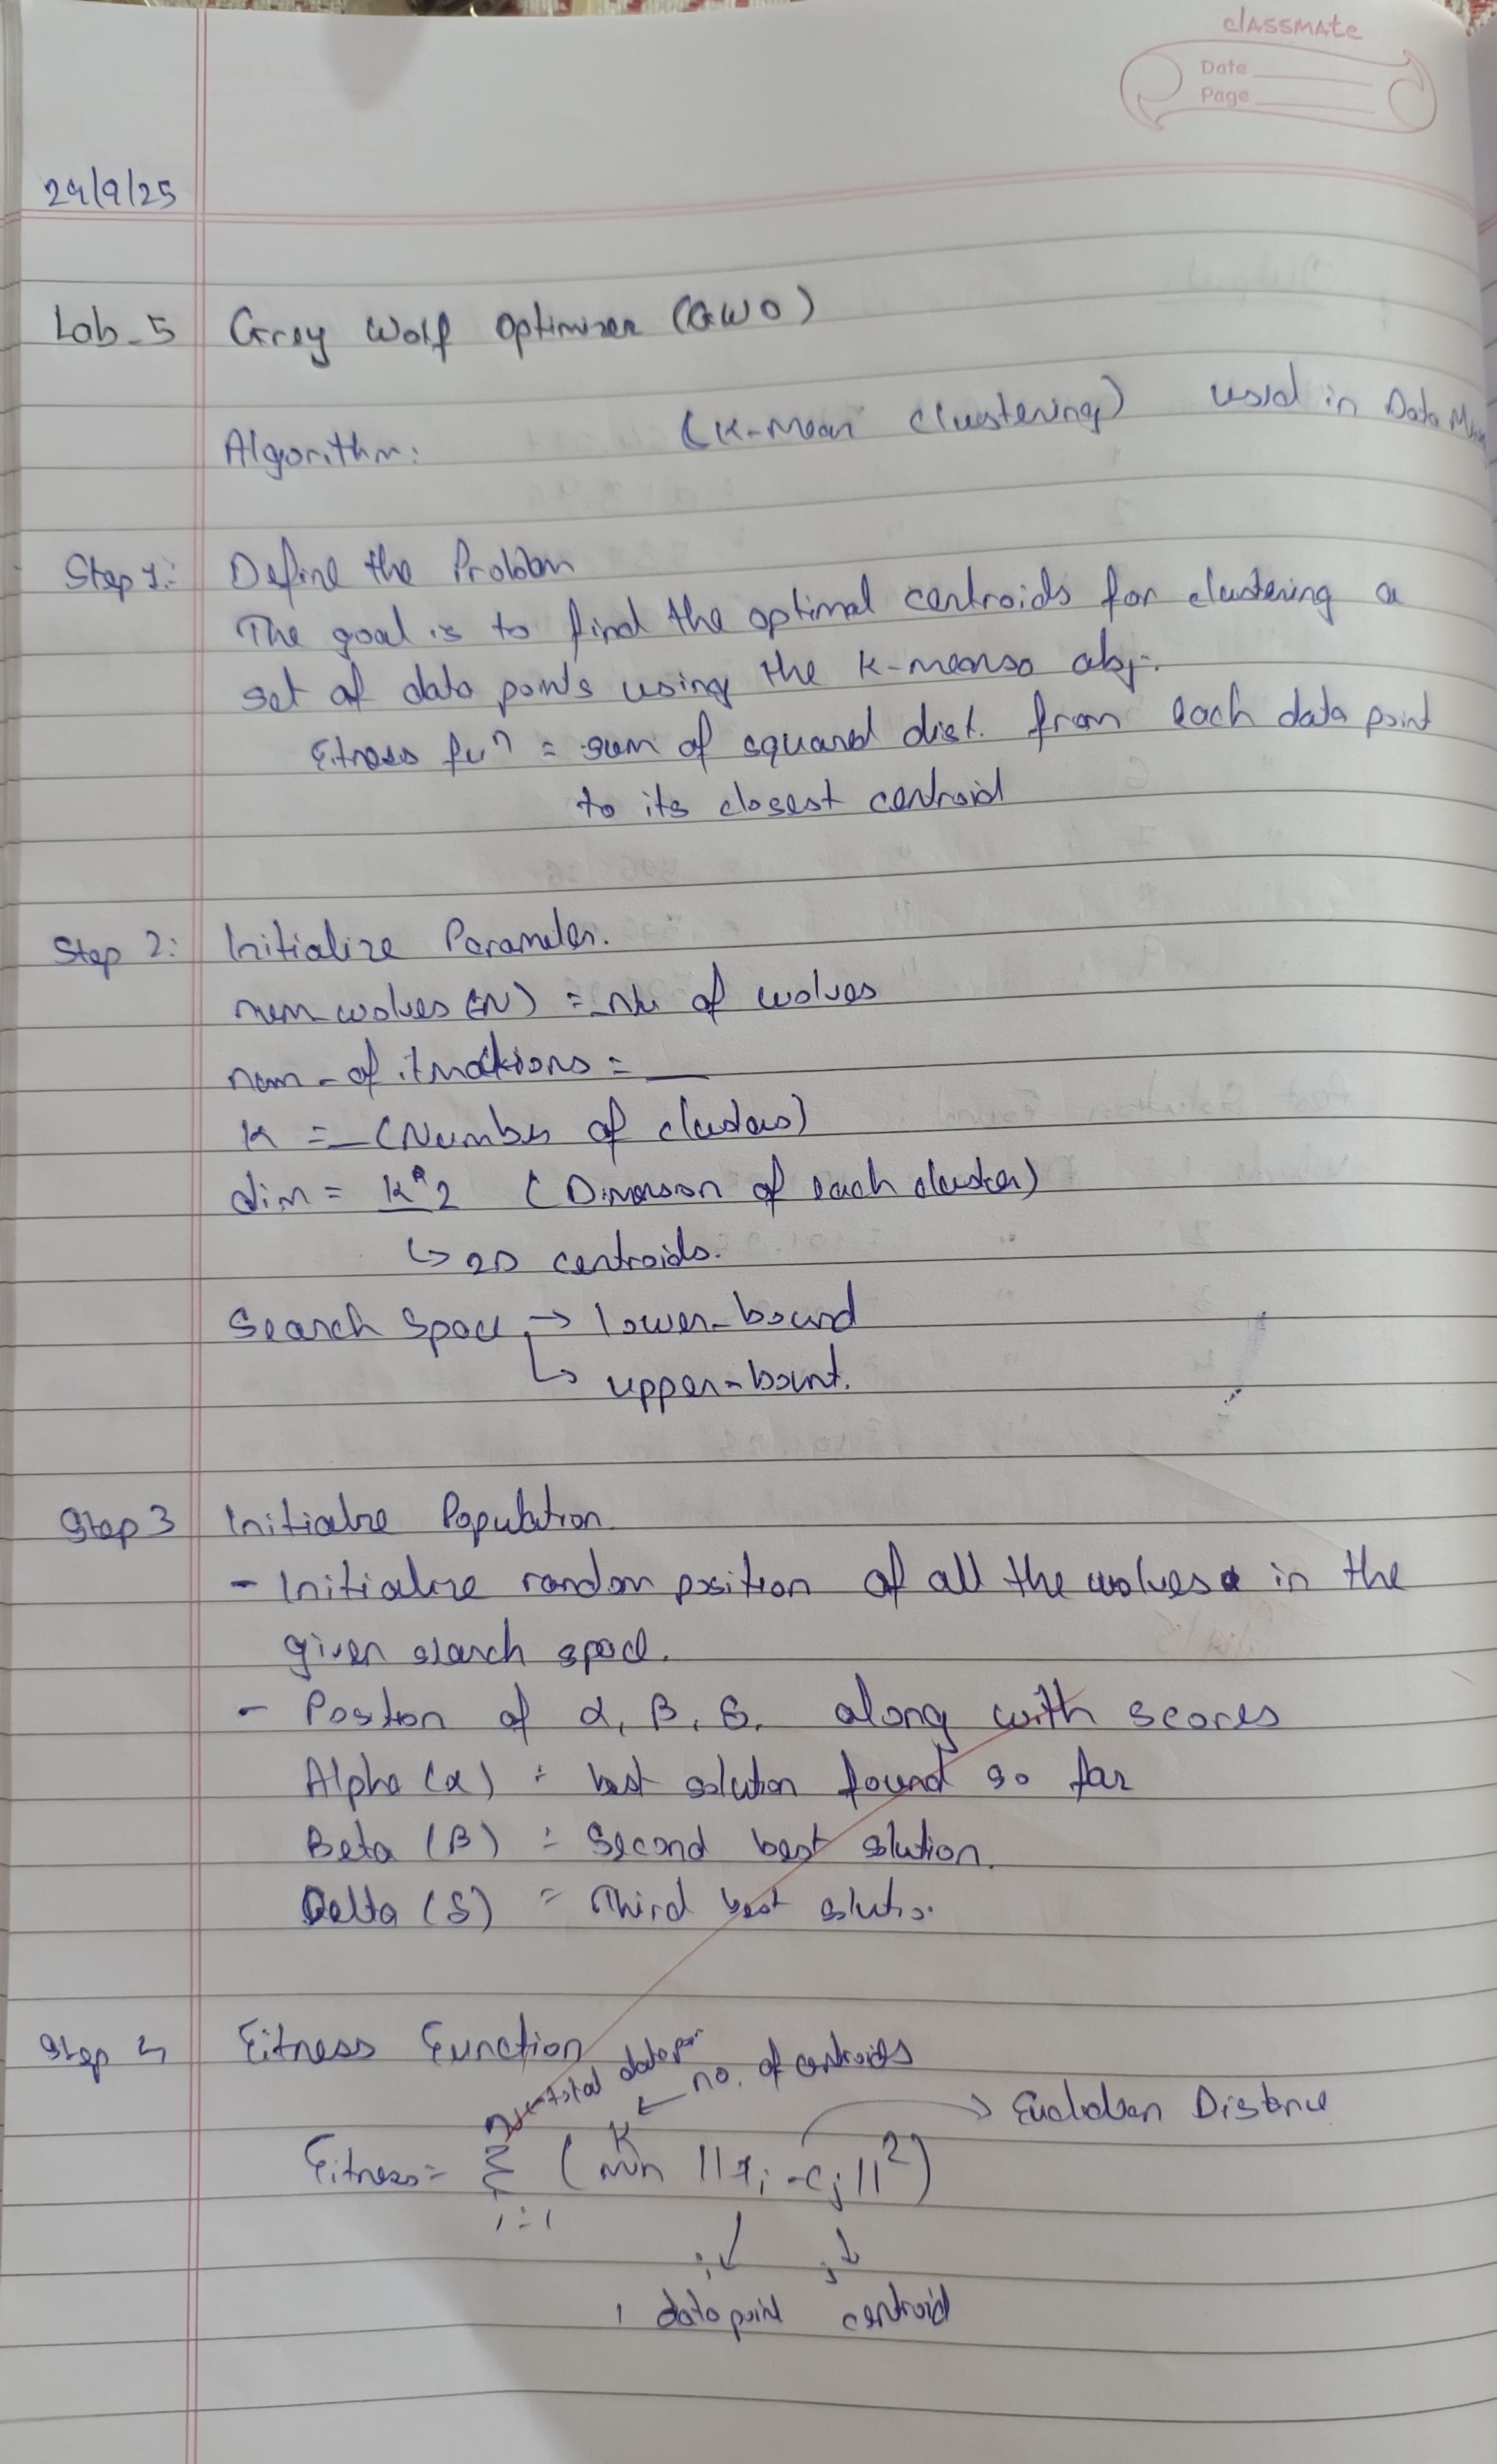 classmate
Date
Page
24/9/25
Lab-5 Grey Wolf Optimizer (GWO)
Algorithm: (K-Mean Clustering) used in Data
Step 1: Define the Problem
The goal is to find the optimal centroids for clustering a
set of data points using the K-means obj.
Fitness fun = sum of squared dist. from each data point
to its closest centroid
Step 2: Initialize Parameter.
num-wolves (N) = of wolves
num-of iterations = __
K = _ (Number of clusters)
dim = K*2 (Dimension of each cluster)
↳ 2D centroids.
Search Space → lower-bound
↳ upper-bount.
Step 3 Initialize Population.
- Initialize random position of all the wolves in the
given search space.
- Position of α, β, δ, along with scores
Alpha (α) = best solution found so far
Beta (β) = Second best solution.
Delta (δ) = Third best solutio.
Step 4 Fitness Function
n ← total no. of centroids
Fitness = Σ i=1 ( K min ||xi - cj||²) → Euclidean Distance
i datapoint j centroid